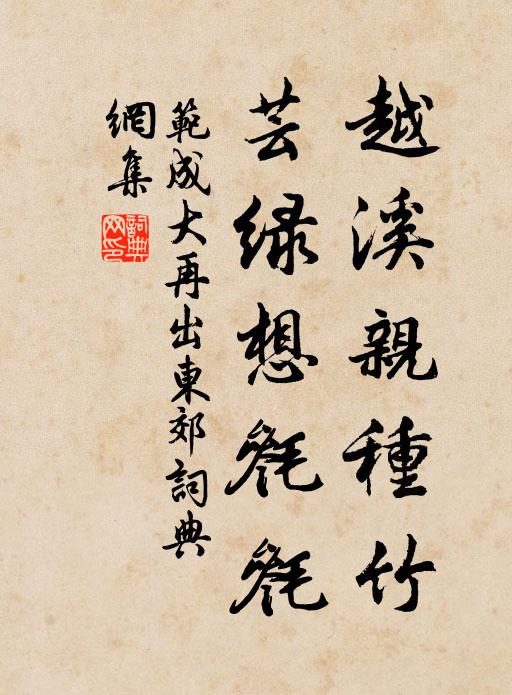 越溪親種竹
芸緑想毿毿
範成大再出東郊詞典
網集
詞典
网印